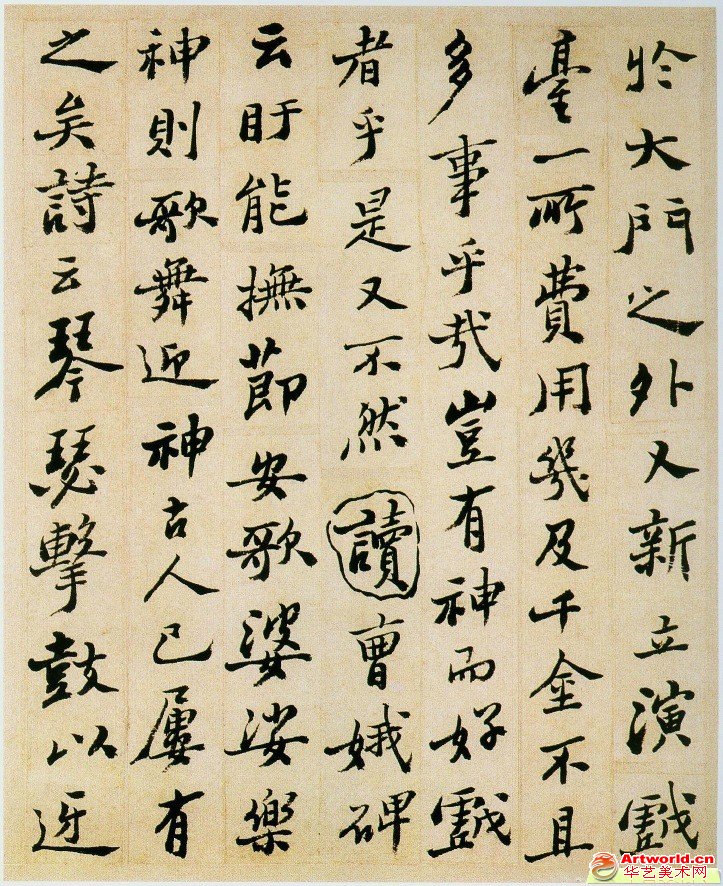 於大門之外又新立演戲
臺一所費用幾及千金不且
多事乎哉豈有神而好戲
者乎是又不然讀曹娥碑
云盱能撫節安歌婆娑樂
神則歌舞迎神古人已屢有
之矣詩云琴瑟擊鼓以迓
Artworld.cn
华艺美术网